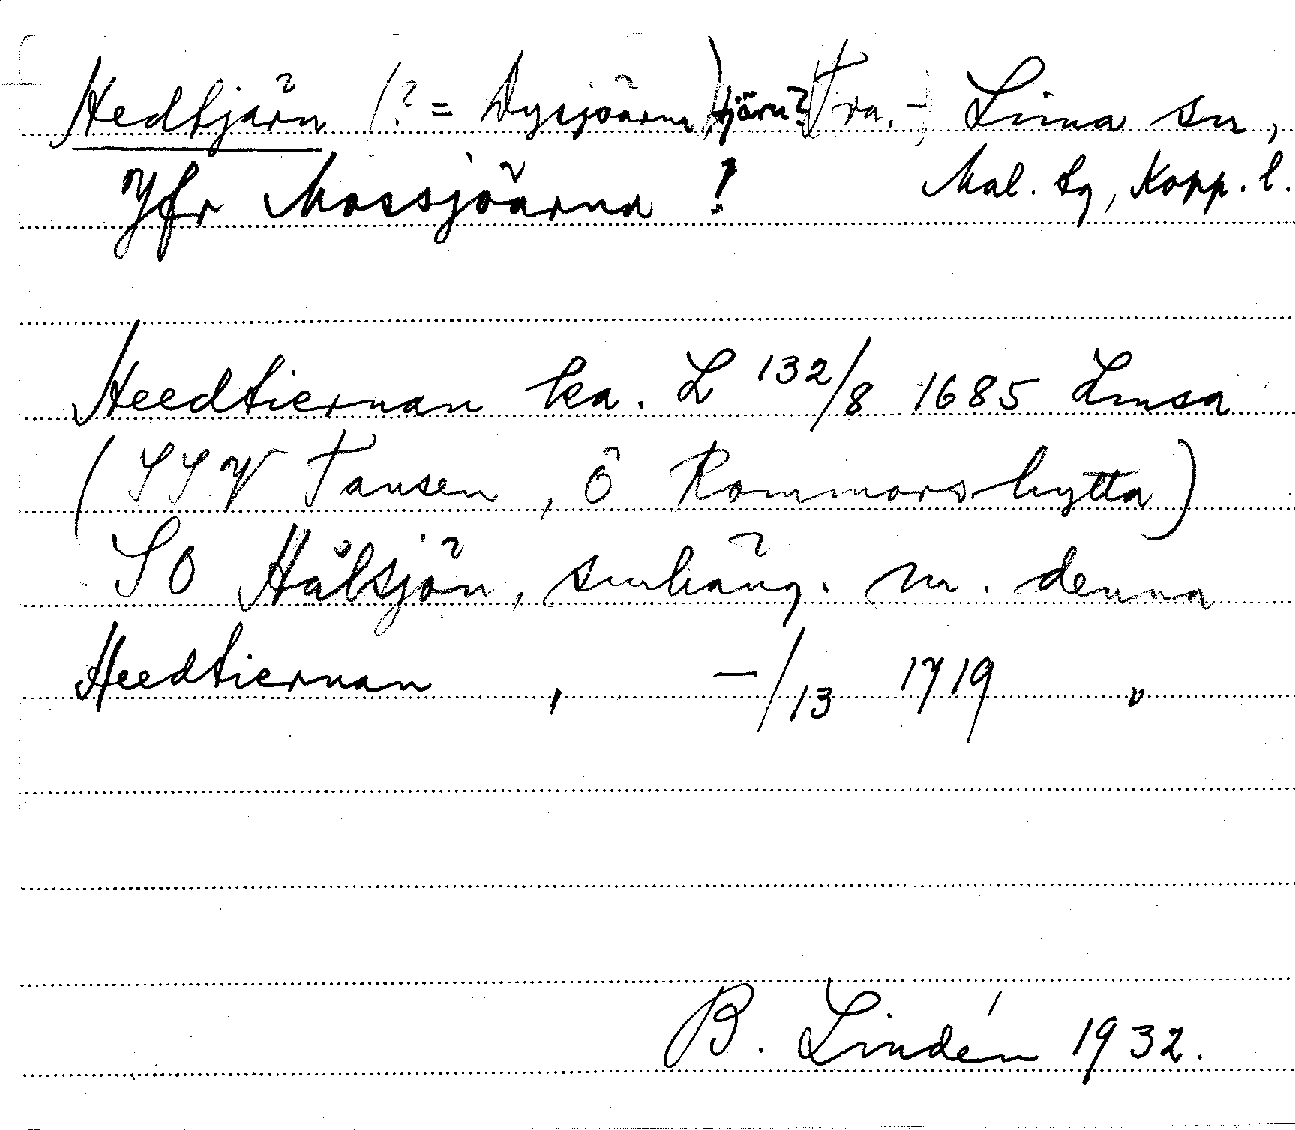 Hedtjärn (? = Dysjöarna) tjärn? Tra. -, Lima sn,
Jfr Mossjöarna ! Mal. tg, Kopp. l.
Heedtiernan ka. L 132/8 1685 Limsa
(SSV Tansen, Ö Rommarshytta)
SO Hålsjön, smhäng. m. denna
Heedtiernan , —/13 1719 "
B. Lindén 1932.